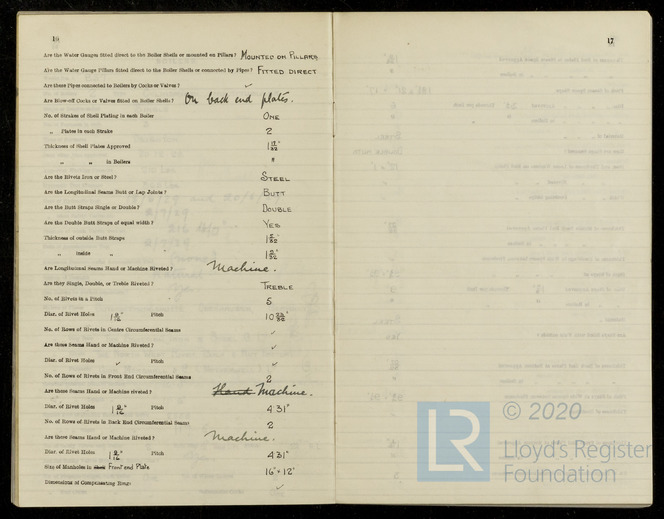 16
Are the Water Gauges fitted direct to the Boiler Shells or mounted on Pillars? MOUNTED ON PILLARS
Are the Water Gauge Pillars fitted direct to the Boiler Shells or connected by Pipes? FITTED DIRECT
Are these Pipes connected to Boilers by Cocks or Valves? ✓
Are Blow-off Cocks or Valves fitted on Boiler Shells? On back end plates.
No. of Strakes of Shell Plating in each Boiler ONE
„ Plates in each Strake 2
Thickness of Shell Plates Approved
„ „ in Boilers "
Are the Rivets Iron or Steel? STEEL
Are the Longitudinal Seams Butt or Lap Joints? BUTT
Are the Butt Straps Single or Double? DOUBLE
Are the Double Butt Straps of equal width? YES
Thickness of outside Butt Straps
„ inside „
Are Longitudinal Seams Hand or Machine Riveted? Machine.
Are they Single, Double, or Treble Riveted? TREBLE
No. of Rivets in a Pitch 5
Diar. of Rivet Holes 1 9/16" Pitch
No. of Rows of Rivets in Centre Circumferential Seams ✓
Are these Seams Hand or Machine Riveted? ✓
Diar. of Rivet Holes ✓ Pitch ✓
No. of Rows of Rivets in Front End Circumferential Seams 2
Are these Seams Hand or Machine riveted? Hand Machine.
Diar. of Rivet Holes 1 9/16" Pitch 4.31"
No. of Rows of Rivets in Back End Circumferential Seams 2
Are these Seams Hand or Machine Riveted? Machine.
Diar. of Rivet Holes 1 9/16" Pitch 4.31"
Size of Manholes in Shell Front end Plate 16" × 12"
Dimensions of Compensating Rings ✓
17
LR
© 2020
Lloyd's Register
Foundation